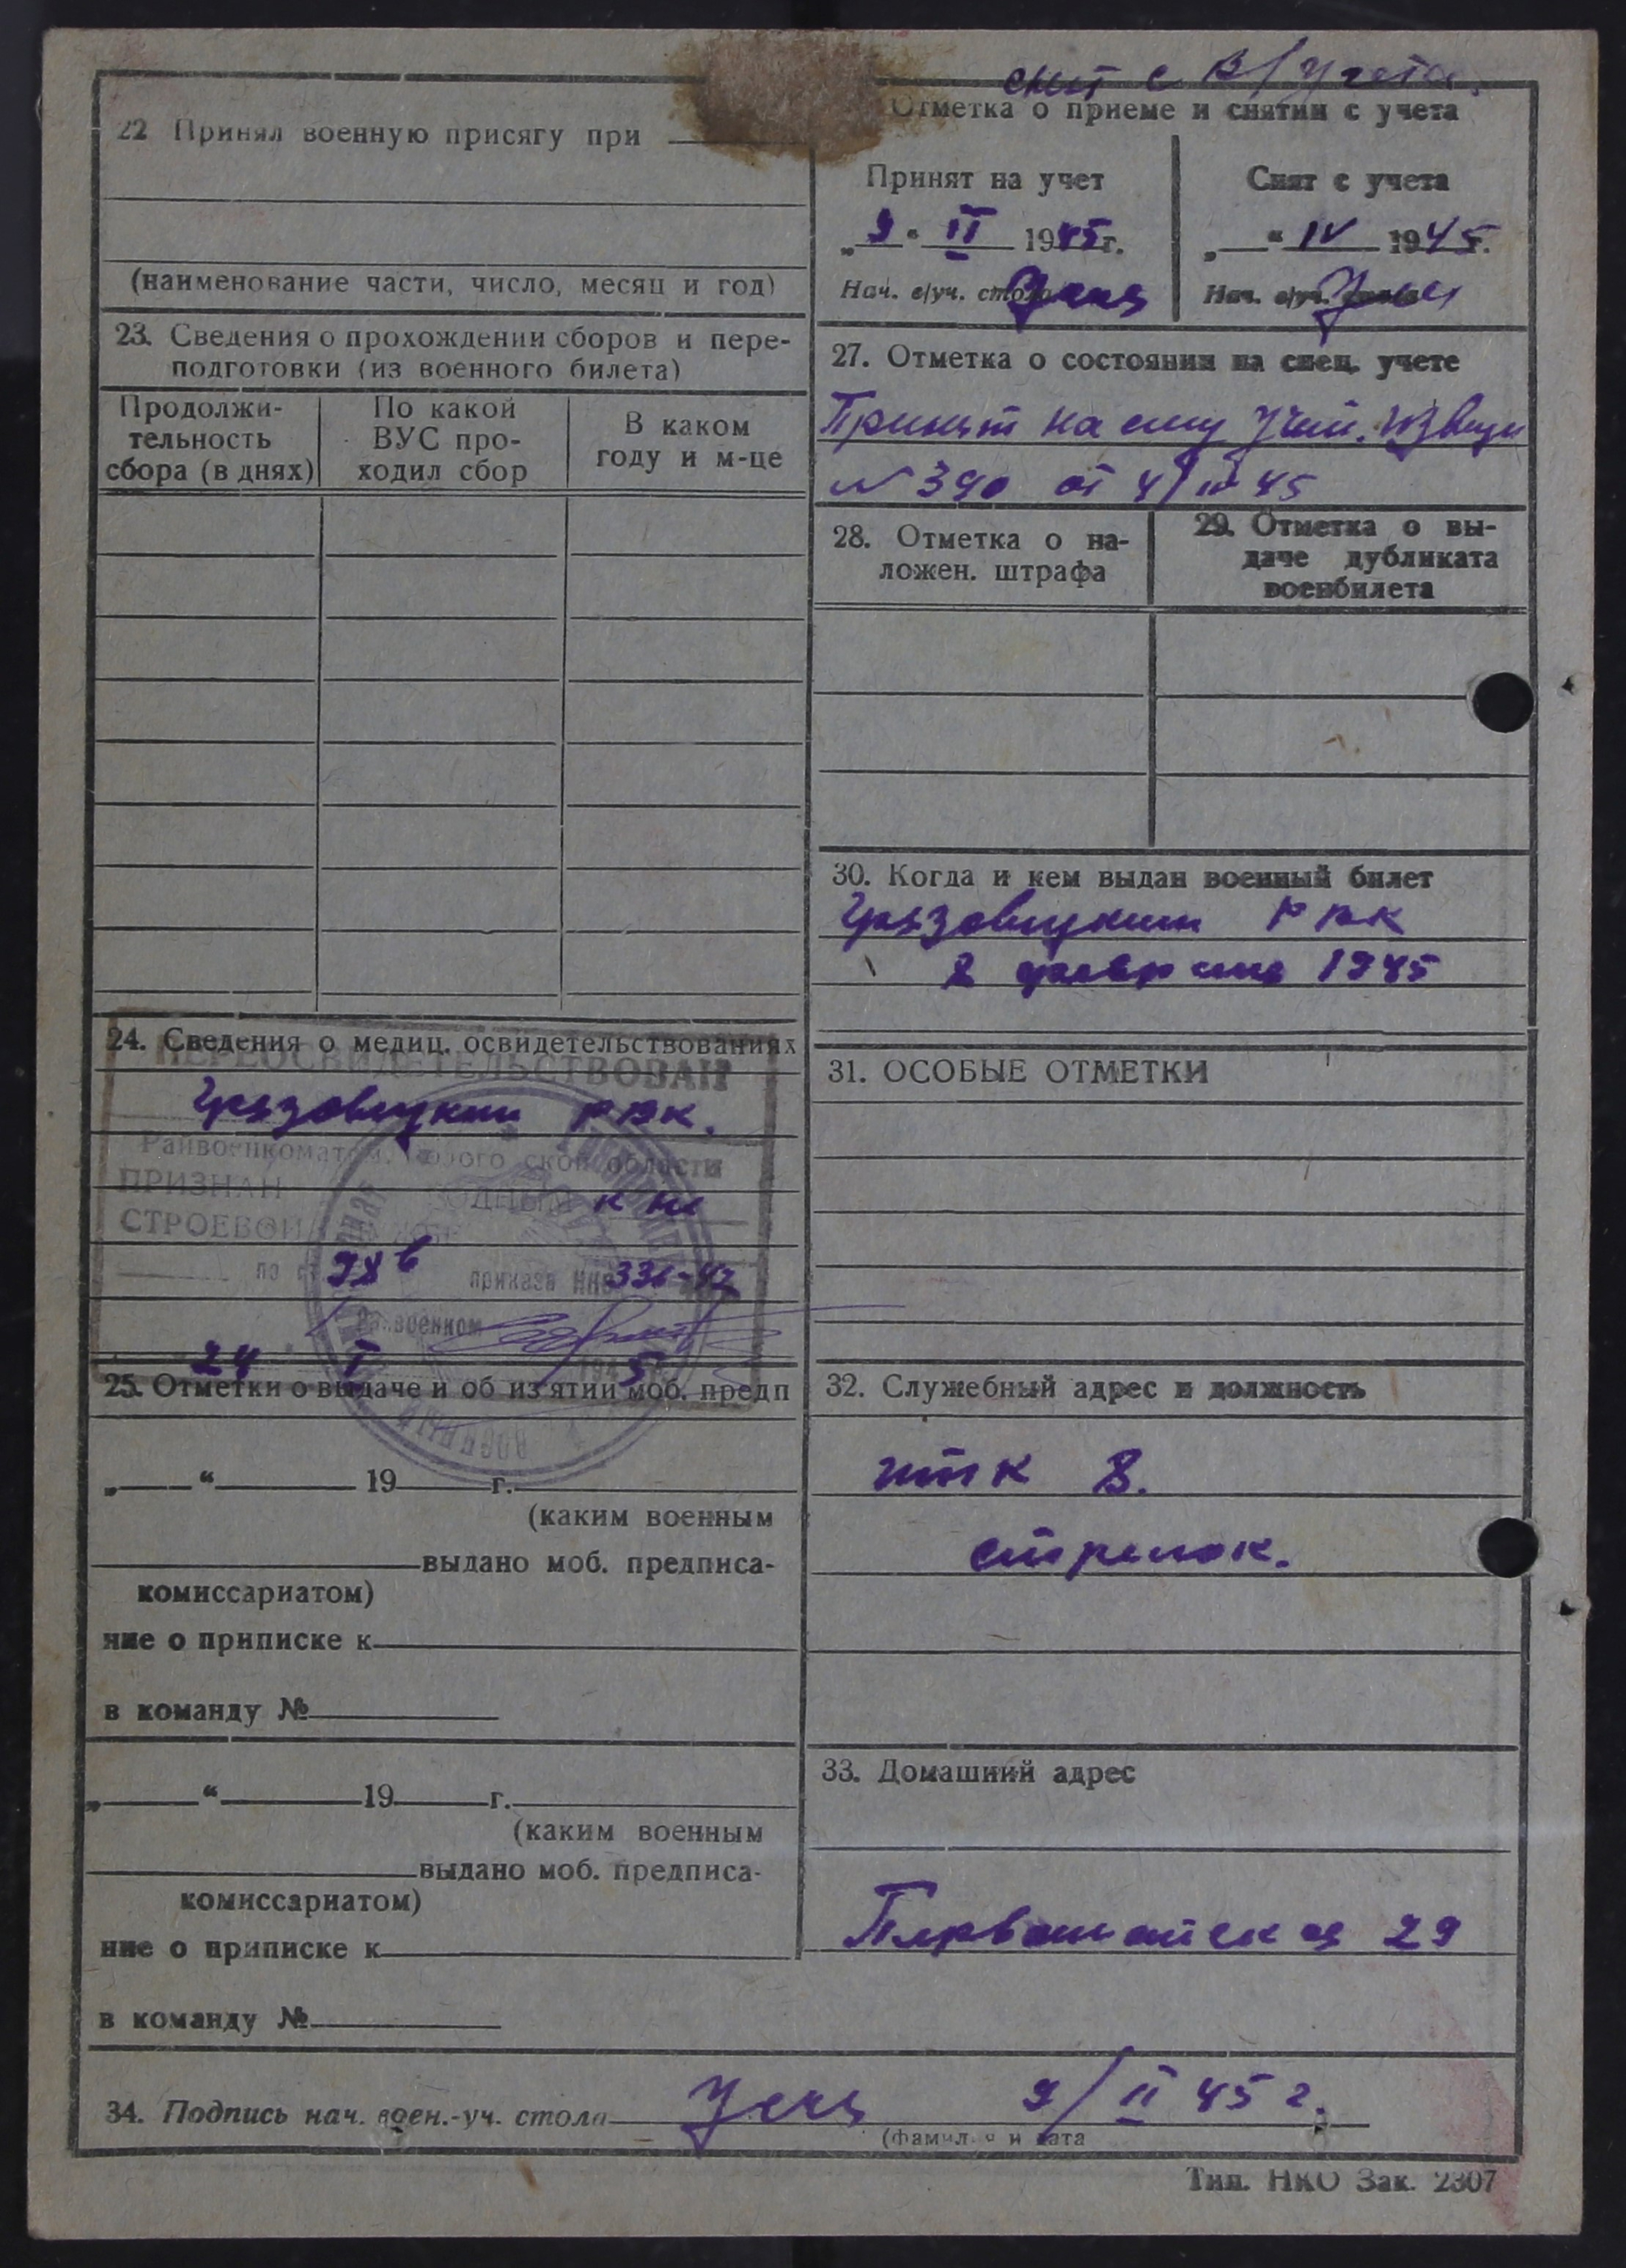 22 Принял военную присягу при
(наименование части, число, месяц и год)
23. Сведения о прохождении сборов и пере-
подготовки (из военного билета)
Продолжи-
тельность
сбора (в днях)
По какой
ВУС про-
ходил сбор
В каком
году и м-це
24. Сведения о медиц. освидетельствованиях
ПЕРЕОСВИДЕТЕЛЬСТВОВАН
Грязовецким РВК.
Райвоенкоматом, области
ПРИЗНАН к не
СТРОЕВОЙ
по IX в приказа НКО 336-42
Райвоенком
24 I 1945
25. Отметки о выдаче и об из'ятии моб. предп
„ “ 19 г.
(каким военным
выдано моб. предписа-
комиссариатом)
ние о приписке к
в команду №
„ “ 19 г.
(каким военным
выдано моб. предписа-
комиссариатом)
ние о приписке к
в команду №
снят с в/учета.
Отметка о приеме и снятии с учета
Принят на учет
„9“ II 1945 г.
Нач. в/уч. стола
Снят с учета
„ “ IV 1945 г.
Нач. в/уч. стола
27. Отметка о состоянии на спец. учете
Принят на спец
№ 390 от 4/III 45
28. Отметка о на-
ложен. штрафа
29. Отметка о вы-
даче дубликата
военбилета
30. Когда и кем выдан военный билет
Грязовецким РВК
8 февраля 1945
31. ОСОБЫЕ ОТМЕТКИ
32. Служебный адрес и должность
итк 8.
стрелок.
33. Домашний адрес
Первомайская 29
34. Подпись нач. воен.-уч. стола 9/II 45 г.
(фамилия и дата
Тип. НКО Зак. 2307